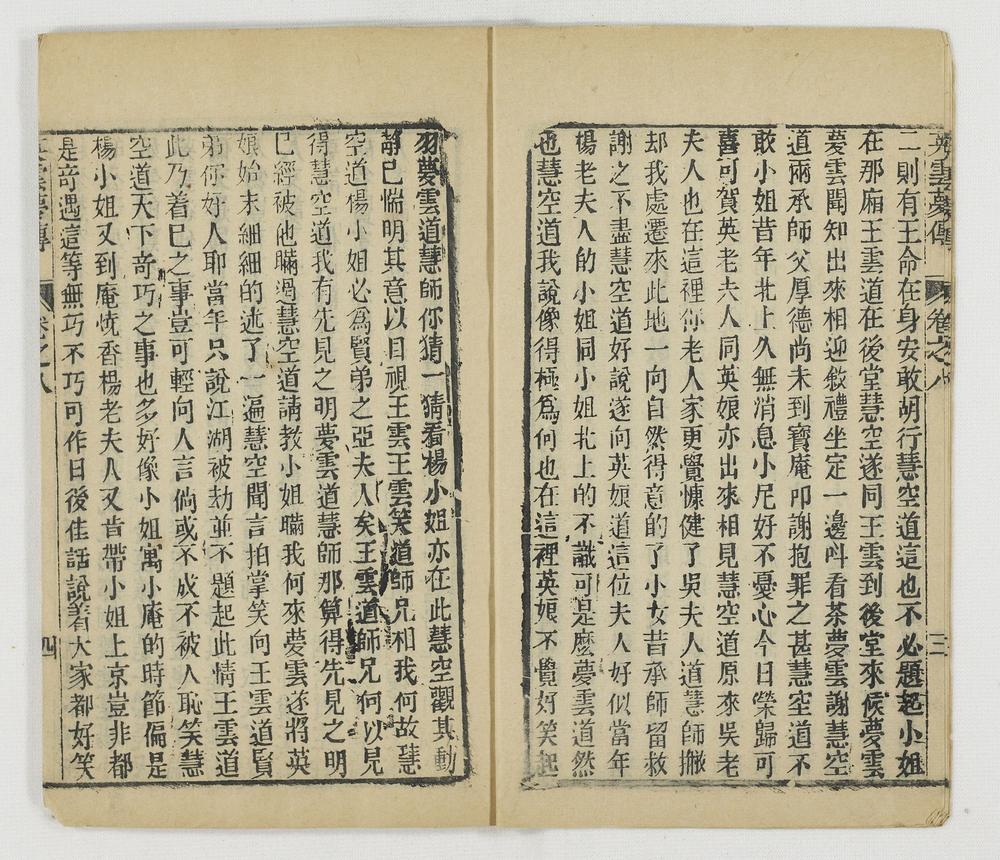 英雲夢傳 卷之八 三
二則有王命在身安敢胡行慧空道這也不必題起小姐
在那廂王雲道在後堂慧空遂同王雲到後堂來候夢雲
夢雲聞知出來相迎敘禮坐定一邊呌看茶夢雲謝慧空
道兩承師父厚德尚未到寶庵叩謝抱罪之甚慧空道不
敢小姐昔年北上久無消息小尼好不憂心今日榮歸可
喜可賀英老夫人同英娘亦出來相見慧空道原來吳老
夫人也在這裡你老人家更覺慷健了吳夫人道慧師撇
却我處遷來此地一向自然得意的了小女昔承師留救
謝之不盡慧空道好說遂向英娘道這位夫人好似當年
楊老夫人的小姐同小姐北上的不識可是麼夢雲道然
也慧空道我說像得極爲何也在這裡英娘不覺好笑起
夢雲道慧師你猜一猜看楊小姐亦在此慧空觀其動
靜已惴明其意以目視王雲王雲笑道師兄相我何故慧
空道楊小姐必爲賢弟之亞夫人矣王雲道師兄何以見
得慧空道我有先見之明夢雲道慧師那算得先見之明
已經被他瞞過慧空道請教小姐瞞我何來夢雲遂將英
娘始末細細的述了一遍慧空聞言拍掌笑向王雲道賢
弟你好人耶當年只說江湖被劫並不題起此情王雲道
此乃着己之事豈可輕向人言倘或不成不被人恥笑慧
空道天下奇巧之事也多好像小姐寓小庵的時節偏是
楊小姐又到庵燒香楊老夫人又肯帶小姐上京豈非都
是奇遇這等無巧不巧可作日後佳話說着大家都好笑
英雲夢傳 卷之八 四